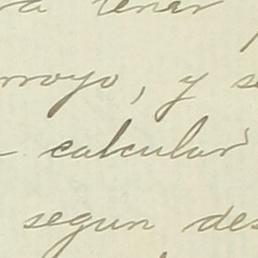 tener
arroyo, y se
calcular
segun des